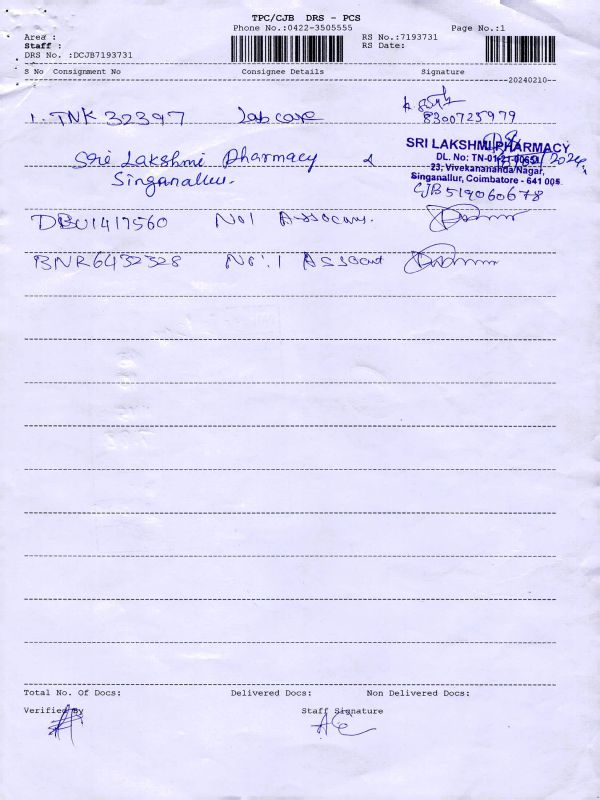 TPC/CJB DRS - PCS
Phone No.:0422-3505555
Page No.:1
Area :
RS No.:7193731
Staff :
RS Date:
DRS No. :DCJB7193731
S No Consignment No Consignee Details Signature
20240210
1. TNK 32397 Lab care
8300725979
Sri Lakshmi Pharmacy
Singanallur.
SRI LAKSHMI PHARMACY
DL. No: TN-01-21-
23, Vivekanandha Nagar,
Singanallur, Coimbatore - 641 005.
CJB 519060678
DBU1417560 No1
BNR6432328 No:1
Total No. Of Docs: Delivered Docs: Non Delivered Docs:
Verified By Staff Signature